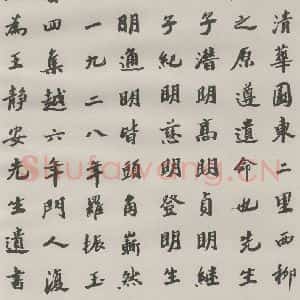 清華園東二里西柳
之原遵遺命也先生
子潛明高明貞明繼
子紀明慈明登明生
明通明皆頭角嶄然
一九二八年羅振玉
四集越六年門人復
為王靜安先生遺書
Shufawang.CN